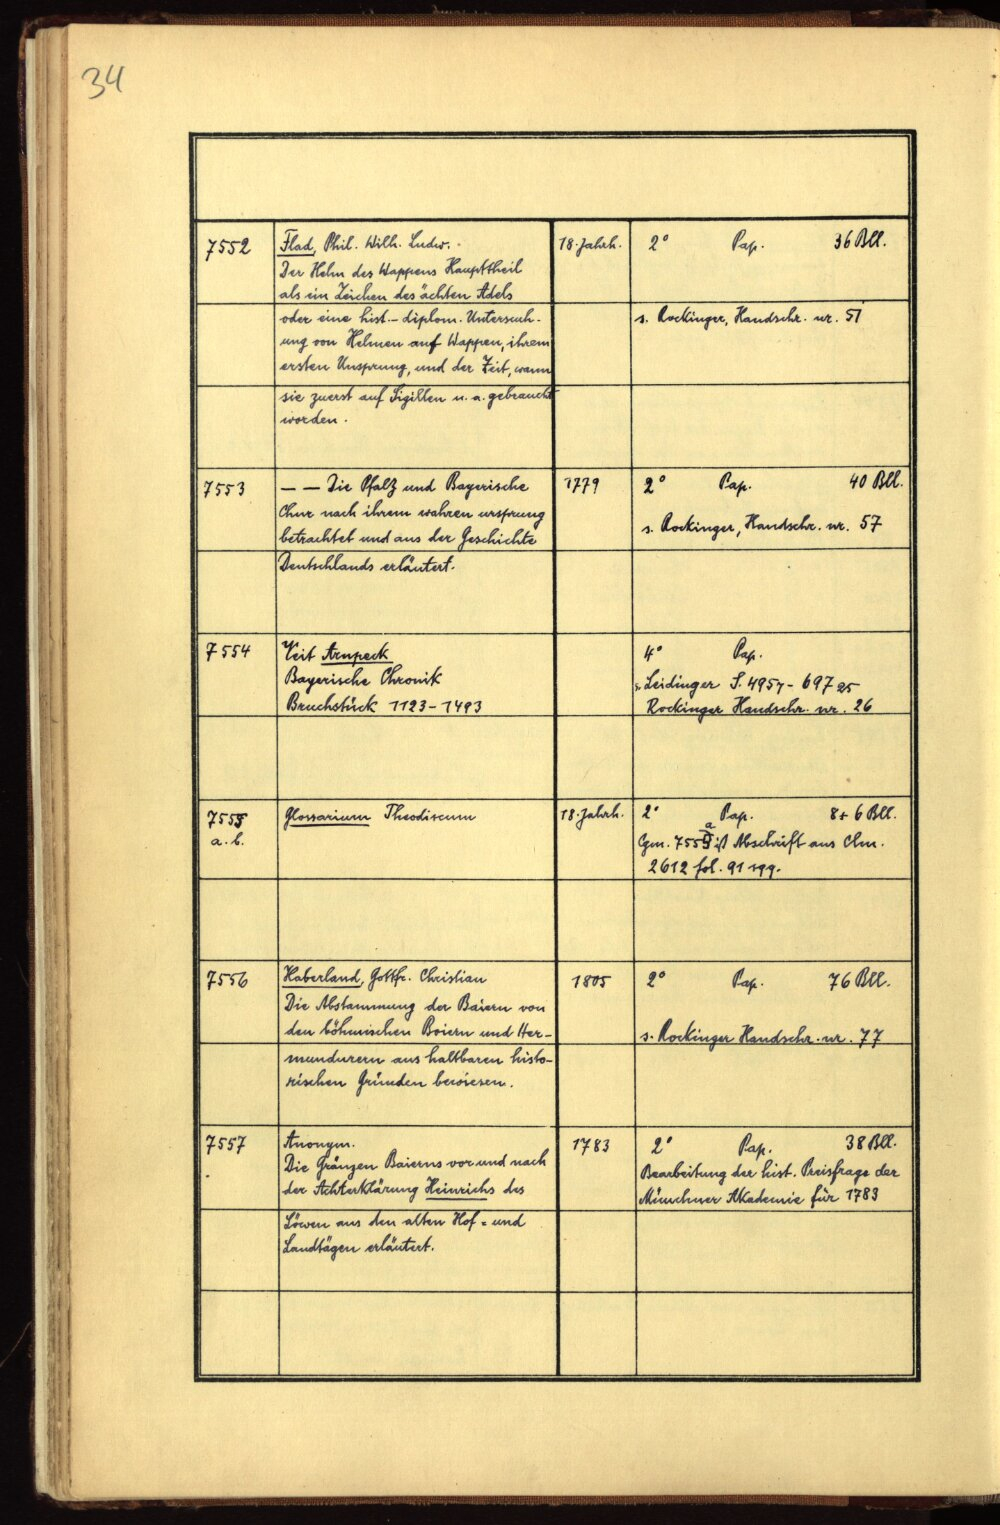 34
7552 Flad, Phil. Wilh. Ludw. 18. Jahrh. 2° Pap. 36 Bll.
Der Helm des Wappens Haupttheil
als ein Zeichen des ächten Adels
oder eine hist.-diplom. Untersuch- s. Rockinger, Handschr. nr. 51
ung von Helmen auf Wappen, ihrem
ersten Ursprung, und der Zeit, wann
sie zuerst auf Sigillen u. a. gebraucht
worden.
7553 — — Die Pfalz und Bayerische 1779 2° Pap. 40 Bll.
Chur nach ihrem wahren ursprung s. Rockinger, Handschr. nr. 57
betrachtet und aus der Geschichte
Deutschlands erläutert.
7554 Veit Arnpeck 4° Pap.
Bayerische Chronik s. Leidinger S.
Bruchstück 1123-1493 Rockinger Handschr. nr. 26
7555 Glossarium Theodiscum 18. Jahrh. 2° Pap. 8+6 Bll.
a. b. Cgm. 7555 a ist Abschrift aus Clm.
2612 fol. 91
7556 Haberland, Gottfr. Christian 1805 2° Pap. 76 Bll.
Die Abstammung der Baiern von
den böhmischen Boiern und Her- s. Rockinger Handschr. nr. 77
mundurern aus haltbaren histo-
rischen Gründen bewiesen.
7557 Anonym. 1783 2° Pap. 38 Bll.
Die Gränzen Baierns vor und nach Bearbeitung der hist. Preisfrage der
der Achterklärung Heinrichs des Münchner Akademie für 1783
Löwen aus den alten Hof= und
Landtägen erläutert.